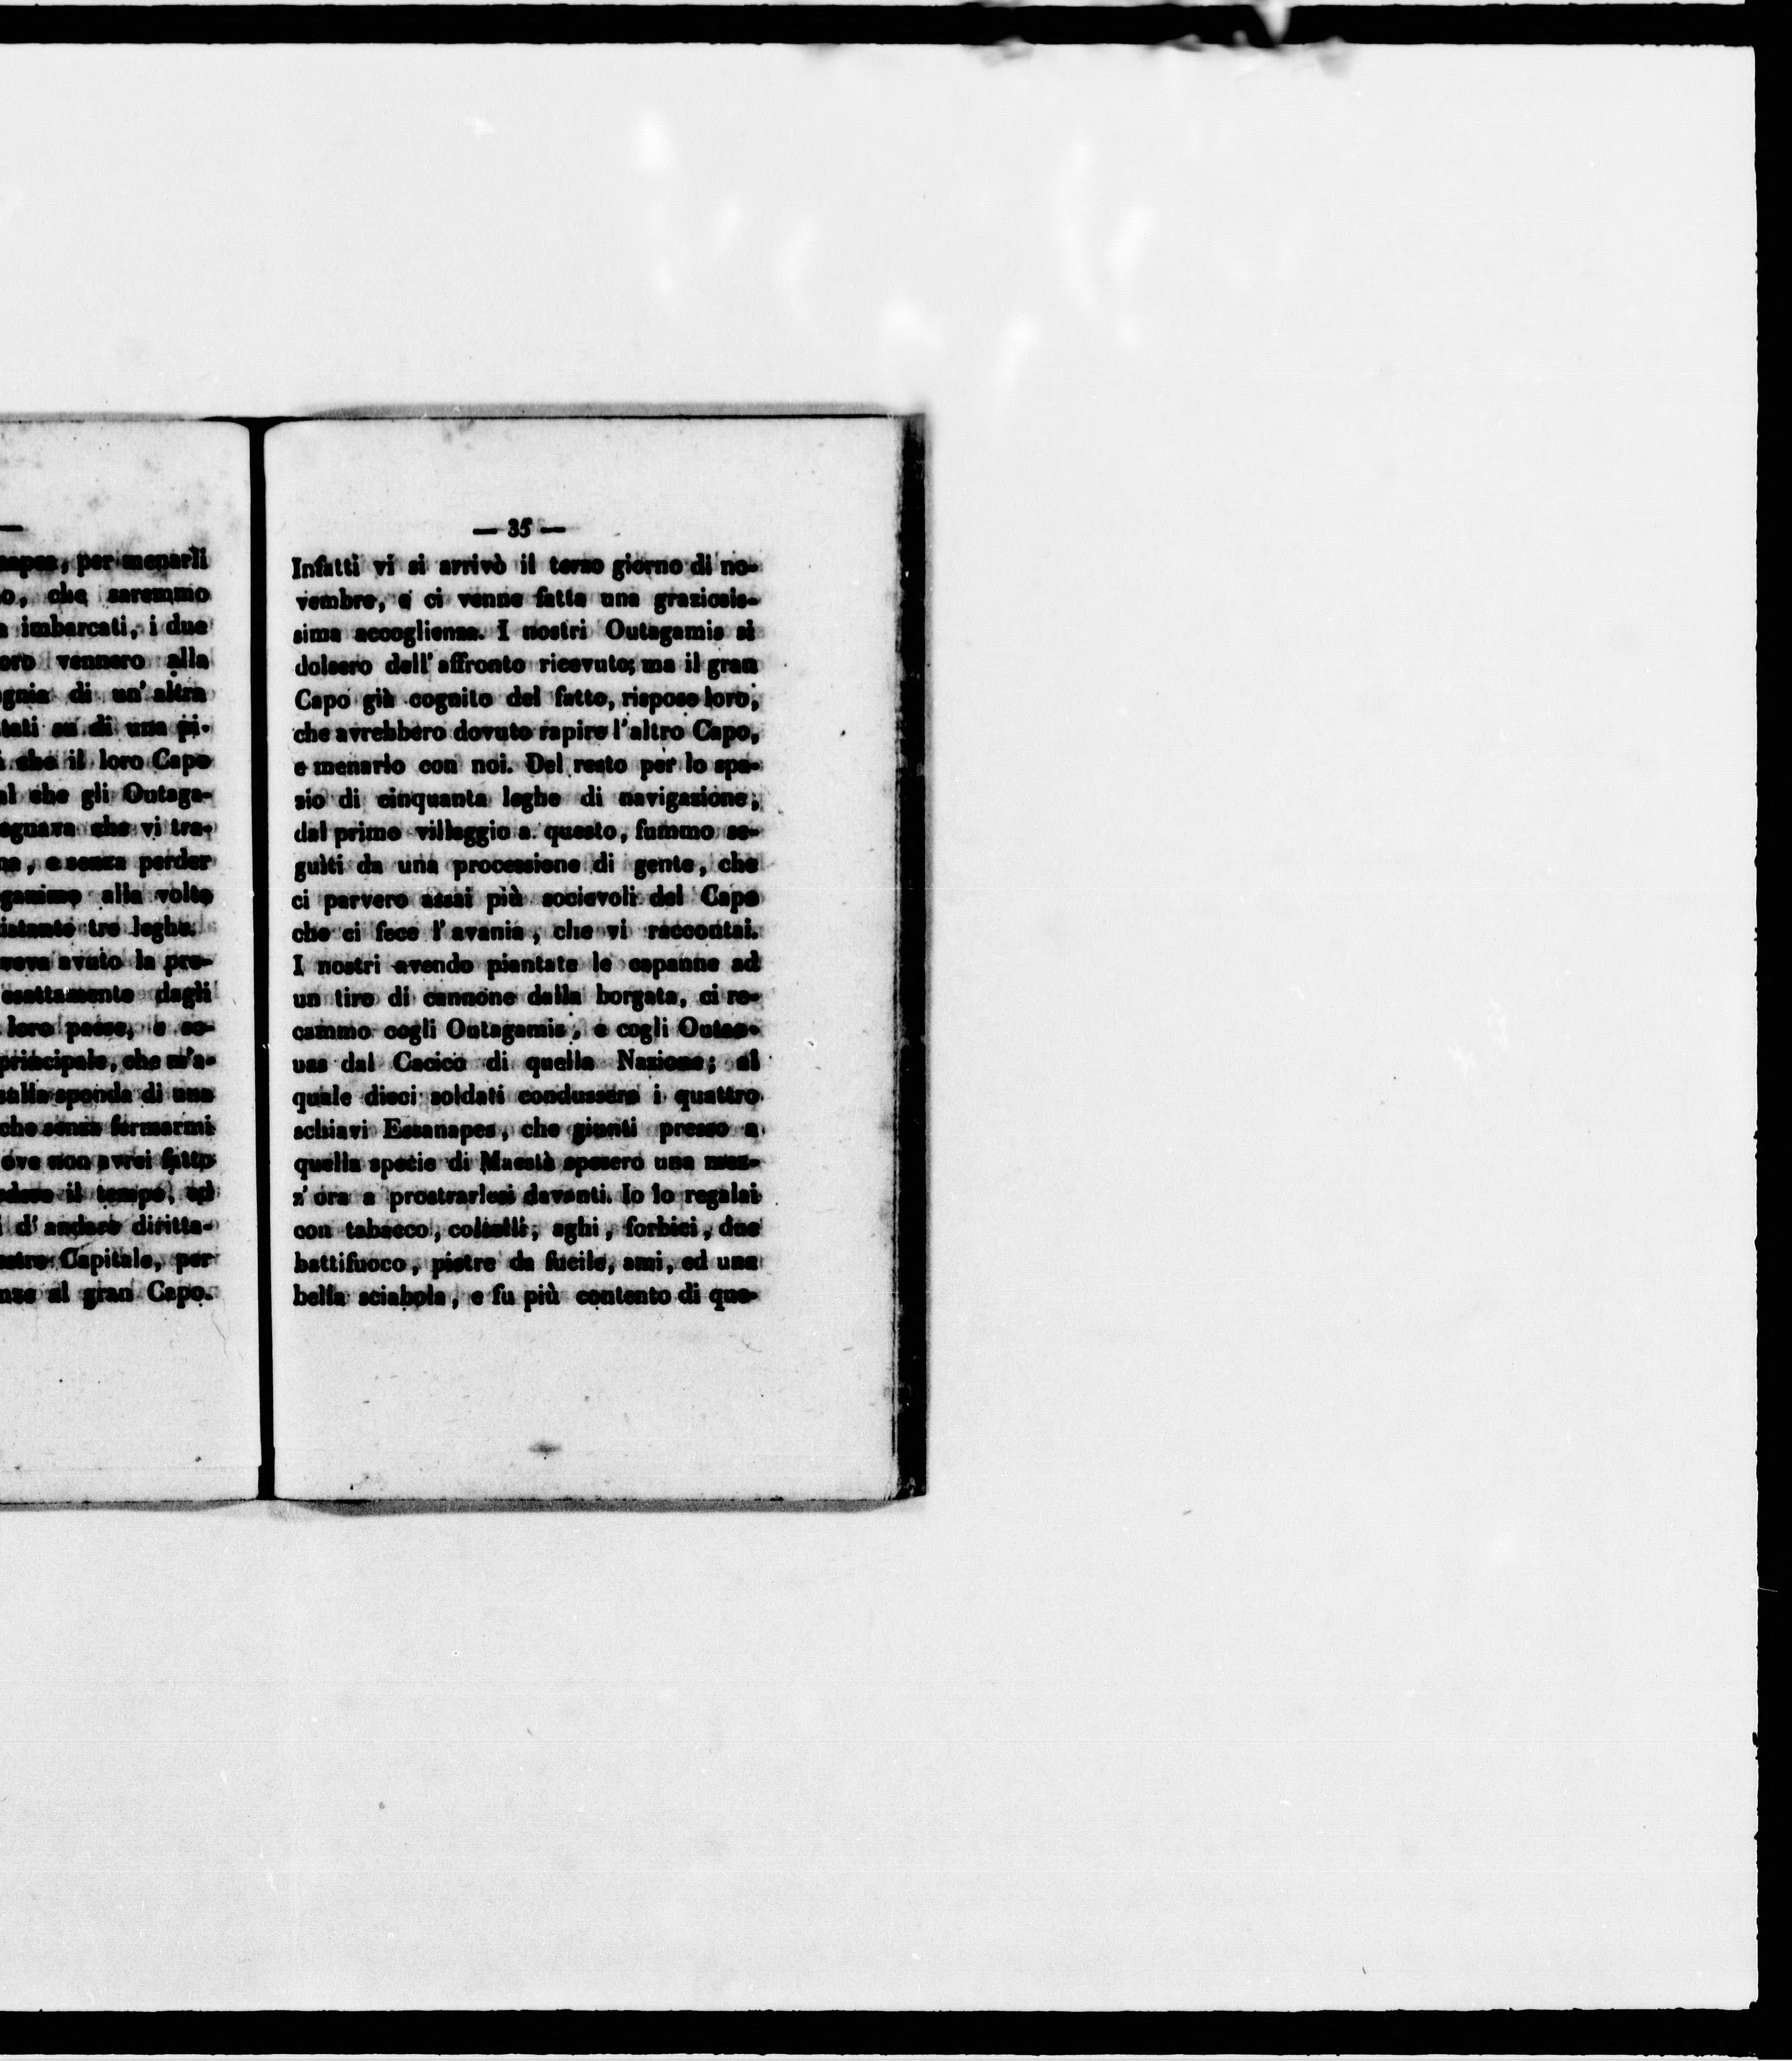 per menarli
che saremmo
imbarcati, i due
vennero alla
di un' altra
su di una pi-
che il loro Capo
che gli Outaga-
che vi tra-
e senza perder
alla volta
tre leghe.
avuto la pre-
esattamente dagli
loro paese, e so-
principale, che m'a-
sponda di una
che senza fermarmi
ove non avrei fatto
il tempo, ed
d' andare diritta-
Capitale, per
al gran Capo.
— 35 —
Infatti vi si arrivò il terzo giorno di no-
vembre, e ci venne fatta una graziosis-
sima accoglienza. I nostri Outagamis si
dolsero dell' affronto ricevuto; ma il gran
Capo già cognito del fatto, rispose loro,
che avrebbero dovuto rapire l'altro Capo,
e menarlo con noi. Del resto per lo spa-
zio di cinquanta leghe di navigazione,
dal primo villaggio a questo, fummo se-
guìti da una processione di gente, che
ci parvero assai più socievoli del Capo
che ci fece l' avania, che vi raccontai.
I nostri avendo piantate le capanne ad
un tiro di cannone dalla borgata, ci re-
cammo cogli Outagamis, e cogli Outao-
uas dal Cacico di quella Nazione; al
quale dieci soldati condussero i quattro
schiavi Essanapes, che giunti presso a
quella specie di Maestà spesero una mez-
z' ora a prostrarlesi davanti. Io lo regalai
con tabacco, coltelli, aghi, forbici, due
battifuoco, pietre da fucile, ami, ed una
bella sciabola, e fu più contento di que-